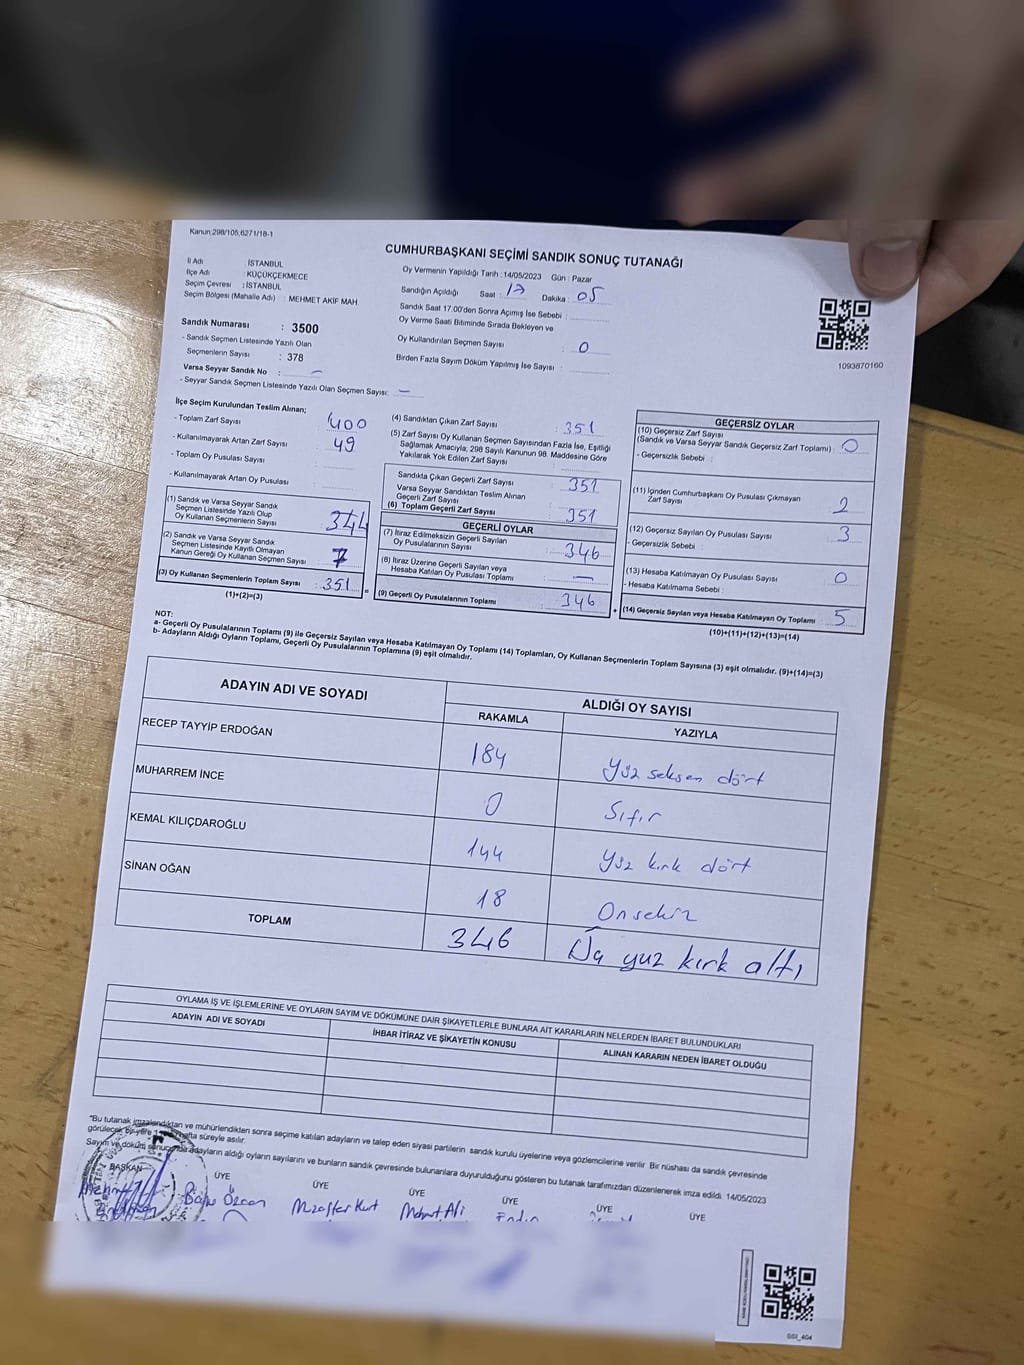 Kanun:298/105,6271/18-1
CUMHURBAŞKANI SEÇİMİ SANDIK SONUÇ TUTANAĞI
İl Adı : İSTANBUL
İlçe Adı : KÜÇÜKÇEKMECE
Seçim Çevresi : İSTANBUL
Seçim Bölgesi (Mahalle Adı) : MEHMET AKİF MAH.
Sandık Numarası : 3500
- Sandık Seçmen Listesinde Yazılı Olan
Seçmenlerin Sayısı : 378
Varsa Seyyar Sandık No : –
- Seyyar Sandık Seçmen Listesinde Yazılı Olan Seçmen Sayısı: –
Oy Vermenin Yapıldığı Tarih : 14/05/2023 Gün : Pazar
Sandığın Açıldığı Saat : 17 Dakika : 05
Sandık Saat 17.00'den Sonra Açımış İse Sebebi :
Oy Verme Saati Bitiminde Sırada Bekleyen ve
Oy Kullandırılan Seçmen Sayısı : 0
Birden Fazla Sayım Döküm Yapılmış İse Sayısı :
1093870160
İlçe Seçim Kurulundan Teslim Alınan;
- Toplam Zarf Sayısı : 400
- Kullanılmayarak Artan Zarf Sayısı : 49
- Toplam Oy Pusulası Sayısı :
- Kullanılmayarak Artan Oy Pusulası :
(1) Sandık ve Varsa Seyyar Sandık
Seçmen Listesinde Yazılı Olup
Oy Kullanan Seçmenlerin Sayısı : 344
(2) Sandık ve Varsa Seyyar Sandık
Seçmen Listesinde Kayıtlı Olmayan
Kanun Gereği Oy Kullanan Seçmen Sayısı : 7
(3) Oy Kullanan Seçmenlerin Toplam Sayısı : 351 =
(1)+(2)=(3)
(4) Sandıktan Çıkan Zarf Sayısı : 351
(5) Zarf Sayısı Oy Kullanan Seçmen Sayısından Fazla İse, Eşitliği
Sağlamak Amacıyla, 298 Sayılı Kanunun 98. Maddesine Göre
Yakılarak Yok Edilen Zarf Sayısı :
Sandıkta Çıkan Geçerli Zarf Sayısı : 351
Varsa Seyyar Sandıktan Teslim Alınan
Geçerli Zarf Sayısı :
(6) Toplam Geçerli Zarf Sayısı : 351
GEÇERLİ OYLAR
(7) İtiraz Edilmeksizin Geçerli Sayılan
Oy Pusulalarının Sayısı : 346
(8) İtiraz Üzerine Geçerli Sayılan veya
Hesaba Katılan Oy Pusulası Toplamı : —
(9) Geçerli Oy Pusulalarının Toplamı : 346 +
GEÇERSİZ OYLAR
(10) Geçersiz Zarf Sayısı
(Sandık ve Varsa Seyyar Sandık Geçersiz Zarf Toplamı) : 0
- Geçersizlik Sebebi :
(11) İçinden Cumhurbaşkanı Oy Pusulası Çıkmayan
Zarf Sayısı : 2
(12) Geçersiz Sayılan Oy Pusulası Sayısı : 3
- Geçersizlik Sebebi :
(13) Hesaba Katılmayan Oy Pusulası Sayısı : 0
- Hesaba Katılmama Sebebi :
(14) Geçersiz Sayılan veya Hesaba Katılmayan Oy Toplamı : 5
(10)+(11)+(12)+(13)=(14)
NOT:
a- Geçerli Oy Pusulalarının Toplamı (9) ile Geçersiz Sayılan veya Hesaba Katılmayan Oy Toplamı (14) Toplamları, Oy Kullanan Seçmenlerin Toplam Sayısına (3) eşit olmalıdır. (9)+(14)=(3)
b- Adayların Aldığı Oyların Toplamı, Geçerli Oy Pusulalarının Toplamına (9) eşit olmalıdır.
ADAYIN ADI VE SOYADI ALDIĞI OY SAYISI
RAKAMLA YAZIYLA
RECEP TAYYİP ERDOĞAN 184 Yüz seksen dört
MUHARREM İNCE 0 Sıfır
KEMAL KILIÇDAROĞLU 144 Yüz kırk dört
SİNAN OĞAN 18 Onsekiz
TOPLAM 346 yuz kırk altı
OYLAMA İŞ VE İŞLEMLERİNE VE OYLARIN SAYIM VE DÖKÜMÜNE DAİR ŞİKAYETLERLE BUNLARA AİT KARARLARIN NELERDEN İBARET BULUNDUKLARI
ADAYIN ADI VE SOYADI İHBAR İTİRAZ VE ŞİKAYETİN KONUSU ALINAN KARARIN NEDEN İBARET OLDUĞU
*Bu tutanak imzalandıktan ve mühürlendikten sonra seçime katılan adayların ve talep eden siyasi partilerin sandık kurulu üyelerine veya gözlemcilerine verilir. Bir nüshası da sandık çevresinde
görülecek bir yere 1 hafta süreyle asılır.
Sayım ve döküm sonucunda adayların aldığı oyların sayılarını ve bunların sandık çevresinde bulunanlara duyurulduğunu gösteren bu tutanak tarafımızdan düzenlenerek imza edildi. 14/05/2023
BAŞKAN ÜYE ÜYE ÜYE ÜYE ÜYE ÜYE
Mehmet Özcan Muzaffer Kurt Mehmet Ali
GSI_404